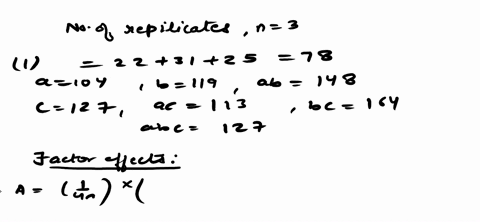 No. of repilicates, n=3
(1) = 22+31+25 = 78
a=104, b=119, ab= 148
c=127, ac=113, bc=164
abc= 127
Factor effects:
A= (1/4n) × (